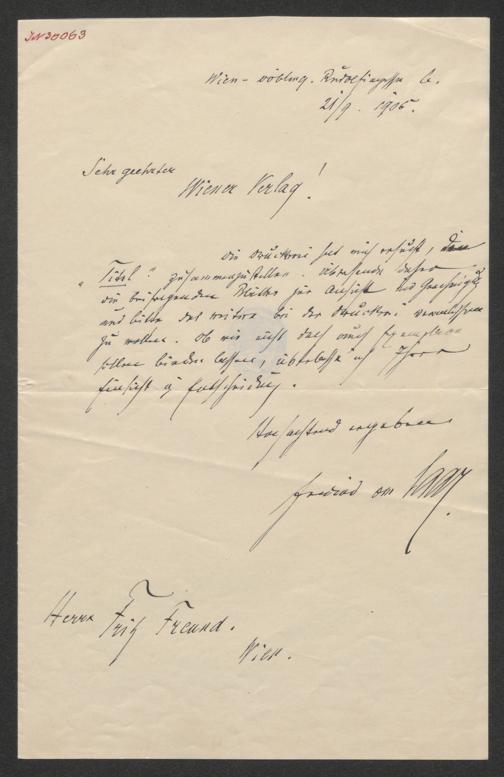 JN 20063
Wien – Döbling. Rudolfinergasse 6.
21/9. 1905.
Sehr geehrter
Wiener Verlag!
Die Druckerei hat mich ersucht, den
"Titel" zusammenzustellen. Übersende daher
die beifolgenden Blätter zur Ansicht und
und bitte das weitere bei der Druckerei veranlassen
zu wollen. Ob wir nicht doch auch Exemplare
sollen binden lassen, überlasse ich Ihrer
Einsicht & Entscheidung.
Hochachtend ergebener
Ferdinand von Saar.
Herrn Fritz Freund.
Wien.